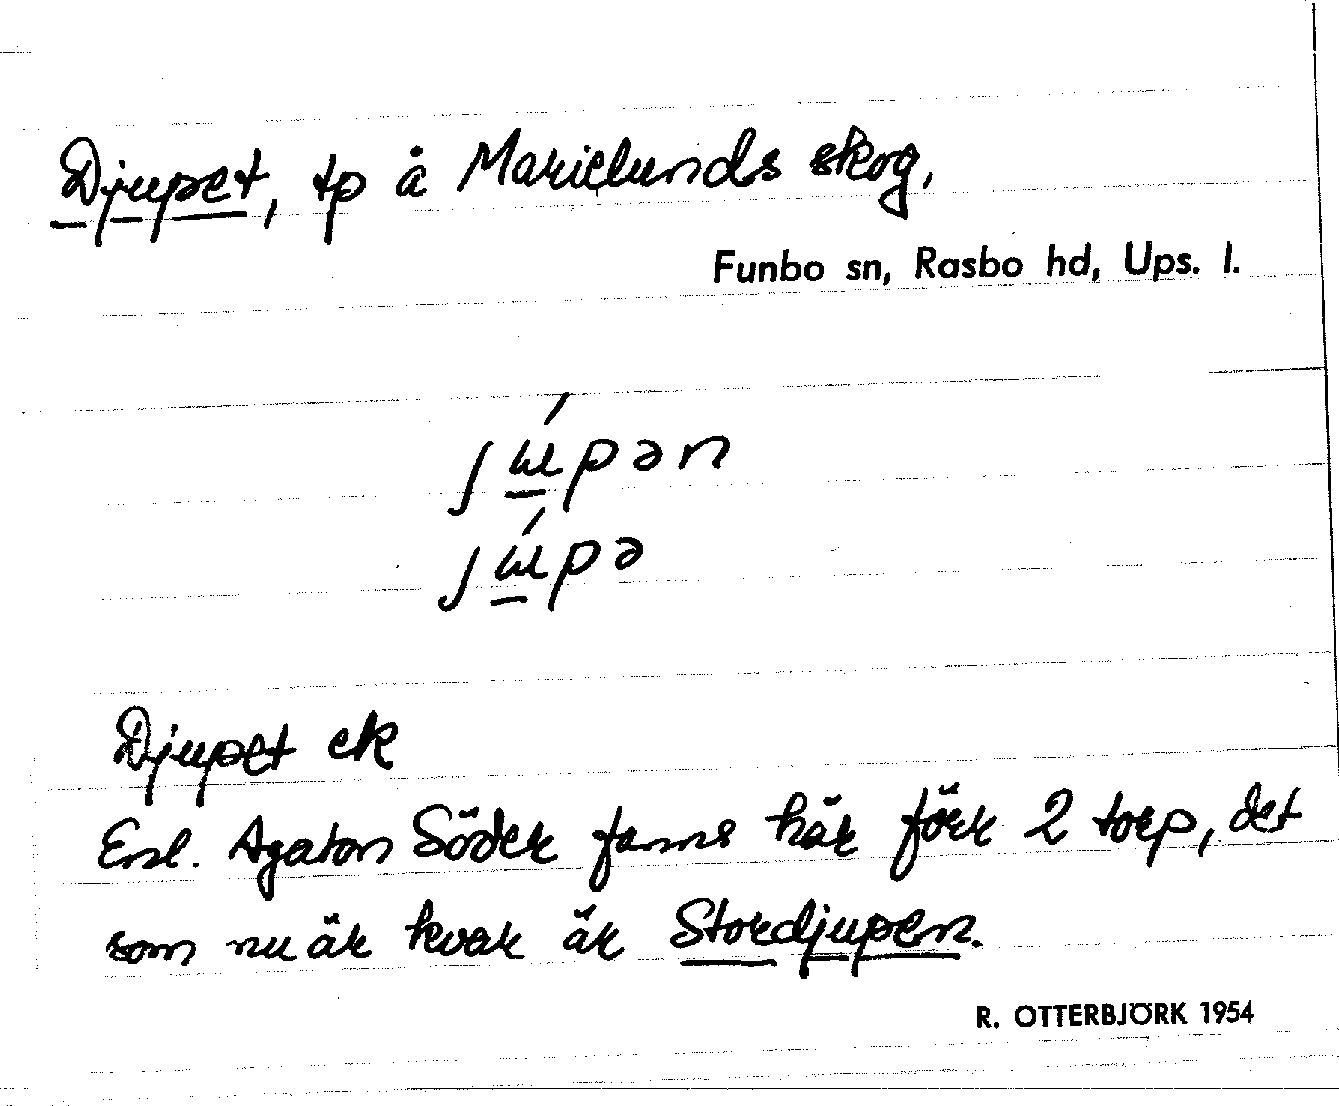 Djupet, tp å Marielunds skog,
Funbo sn, Rasbo hd, Ups. l.
jɯ́pən
jɯ́pə
Djupet ek
Enl. Agaton Söder fanns här förr 2 torp, det
som nu är kvar är Stordjupen.
R. OTTERBJÖRK 1954